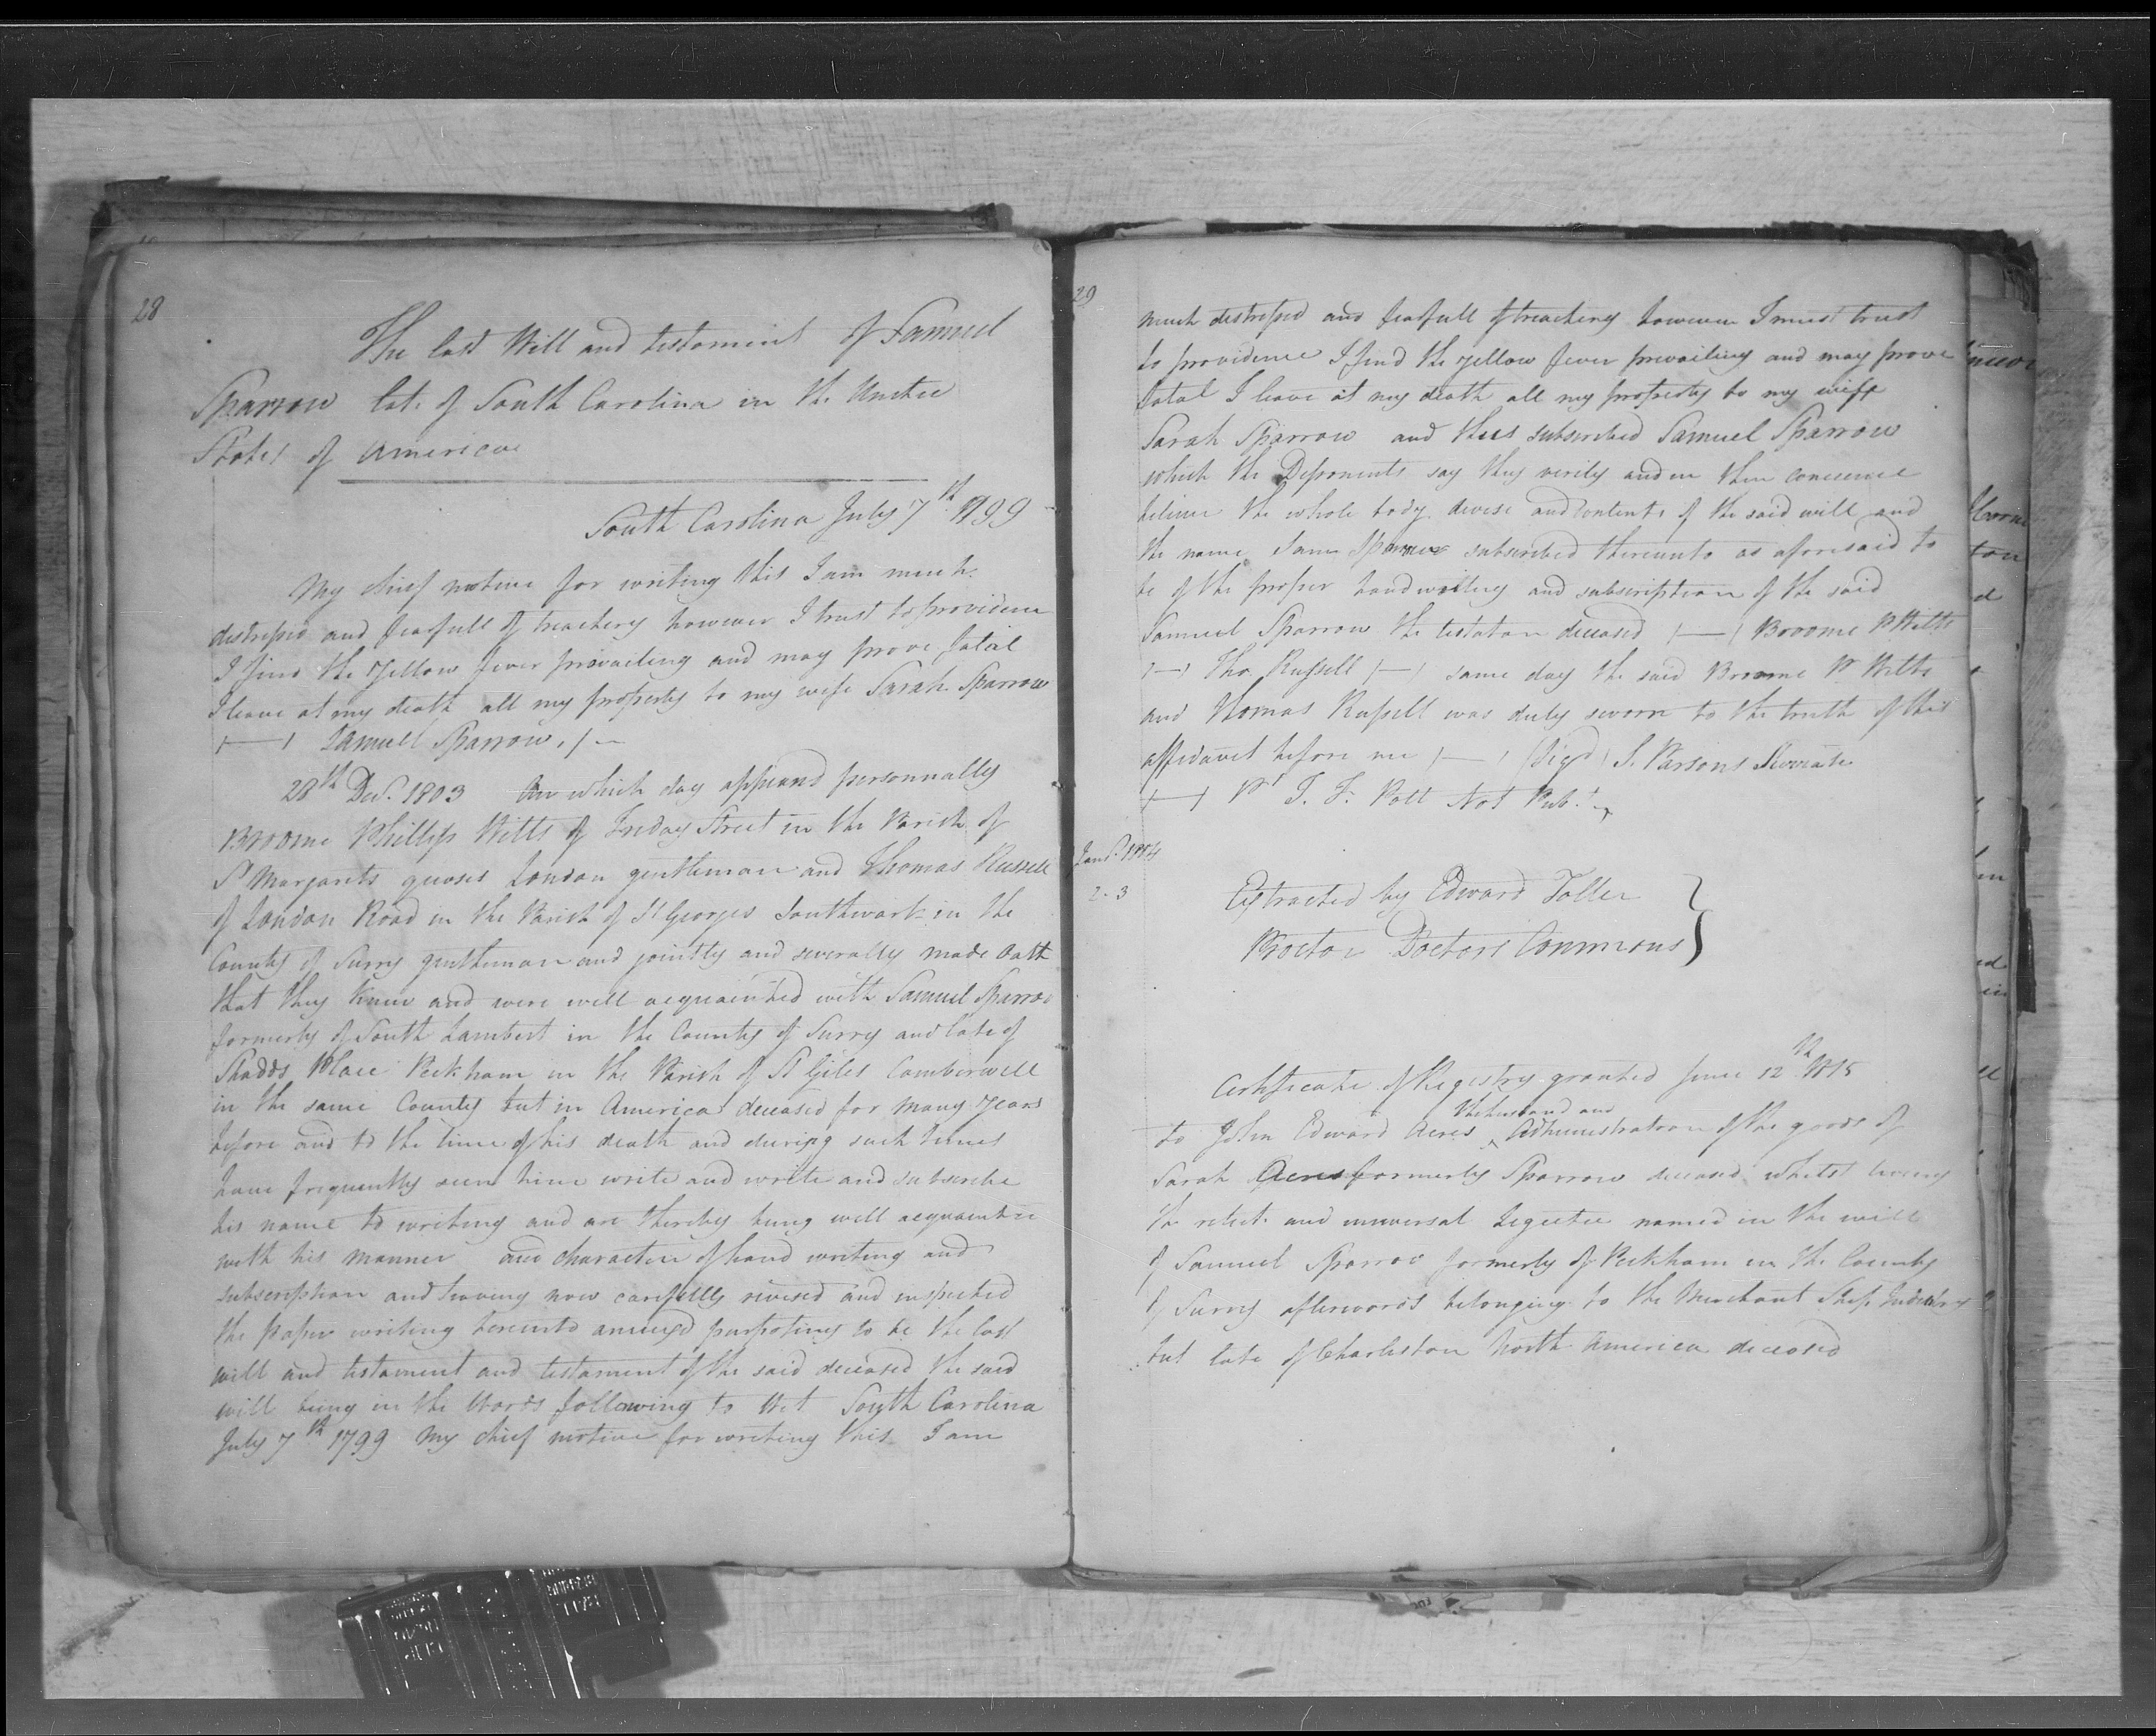 28
The last Will and testament of Samuel
Sparrow late of South Carolina in the United
States of America
South Carolina July 7th 1799
My chief motive for writing this I am much
distressed and fearfull of treachery however I trust to providence
I find the Yellow fever prevailing and may prove fatal
I leave at my death all my property to my wife Sarah Sparrow
Samuel Sparrow
28th Decr. 1803 On which day appeared personnally
Broome Phillips Witts of Friday Street in the Parish of
St Margarets gentleman and Thomas Russell
of London Road in the Parish of St Georges Southwark in the
County of Surry gentleman and jointly and severally made Oath
that they knew and were well acquainted with Samuel Sparrow
formerly of South Lambert in the County of Surry and late of
Shadds Place Peckham in the Parish of St Giles Camberwell
in the same County but in America deceased for many years
before and to the time of his death and during such times
have frequently seen him write and write and subscribe
his name to writing and are thereby being well acquainted
with his manner and character of hand writing and
subscription and having now carefully revised and inspected
the paper writing hereunto annexed purporting to be the last
will and testament and testament of the said deceased the said
will being in the Words following to Wit South Carolina
July 7th 1799 My chief motive for writing this I am
29
much distressed and fearfull of treachery however I must trust
to providence I find the Yellow fever prevailing and may prove
fatal I leave at my death all my property to my wife
Sarah Sparrow and thus subscribed Samuel Sparrow
which the Deponents say they verily and in their concience
believe the whole body devise and Contents of the said will and
the name Sam Sparrow subscribed thereunto as aforesaid to
be of the proper handwriting and subscription of the said
Samuel Sparrow the testator deceased Broome P Witts
Tho Russell same day the said Broome P Witts
and Thomas Russell was duly sworn to the truth of this
affidavit before me (Sigd) S. Parsons Surrogate
Pt J. F. Pott Not Pub:
Jany. 1804
2-3
Extracted by Edward Toller
Proctor Doctors Commons
Certificate of Registry granted June 12th 1815
the husband and
to John Edward Acres Administrator of the goods of
Sarah Acres formerly Sparrow deceased whilst living
the relict and universal Legatee named in the will
of Samuel Sparrow formerly of Peckham in the County
of Surry afterwards belonging to the Merchant Ship
but late of Charleston North America deceased